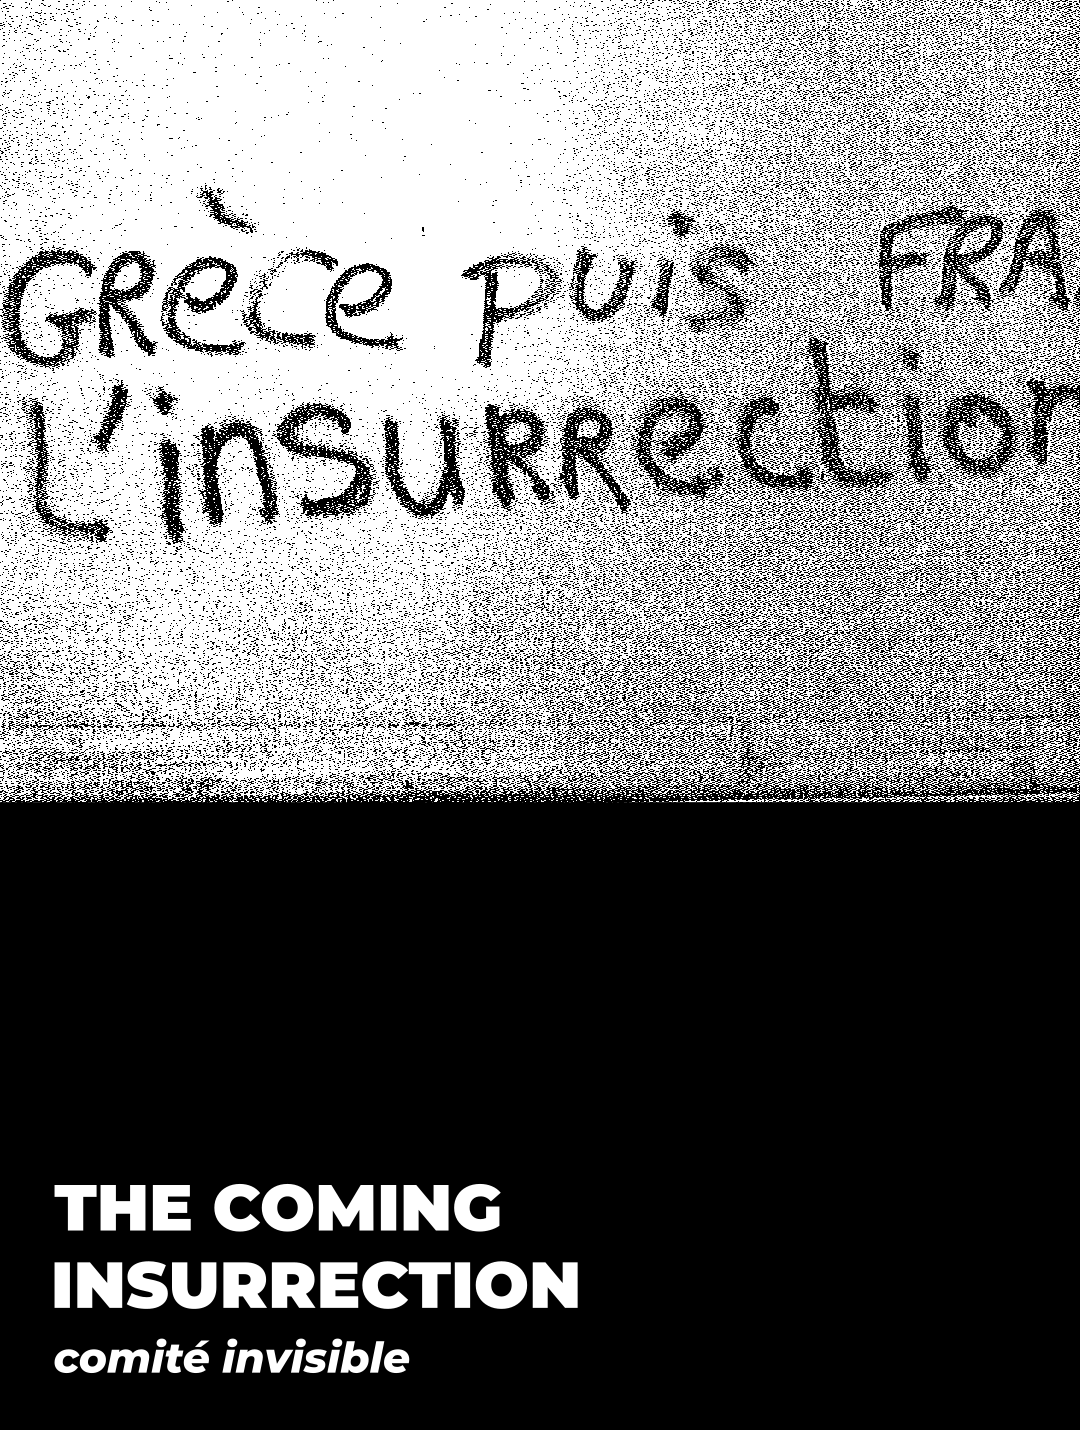 GRèce puis FRA
L'insuRRection
THE COMING
INSURRECTION
comité invisible